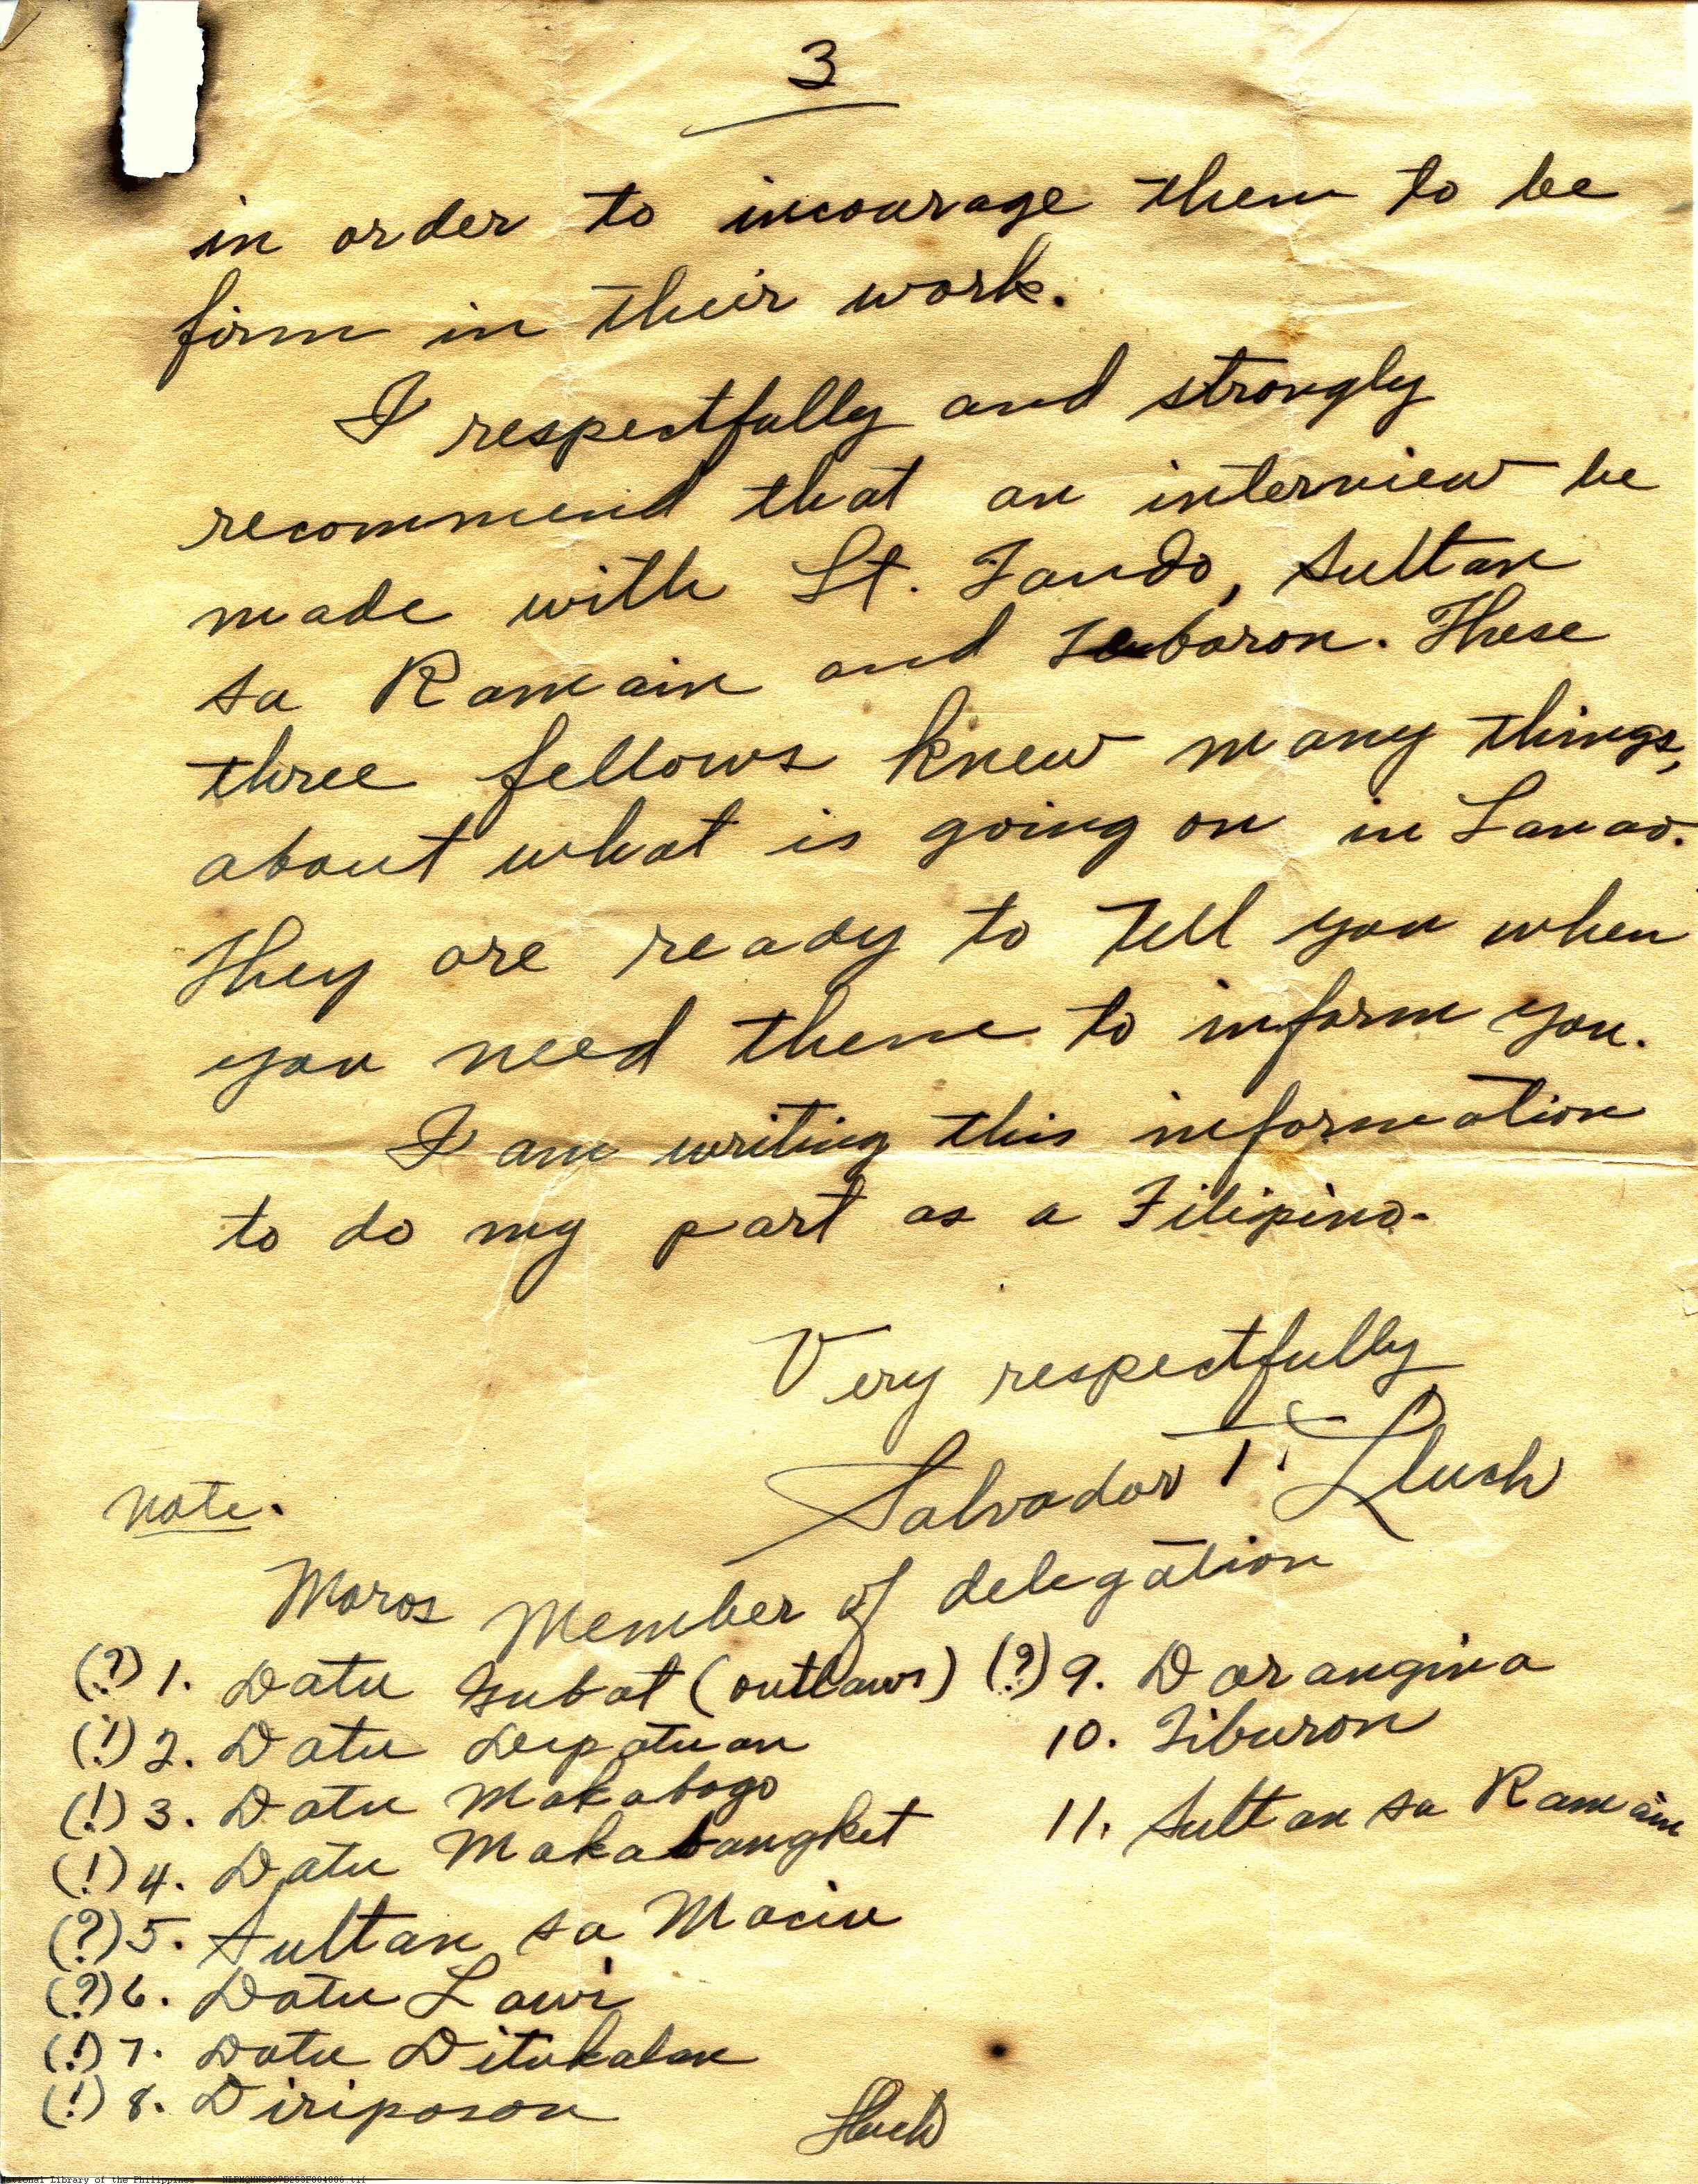 3
in order to incourage them to be
firm in their work.
I respectfully and strongly
recommend that an interview be
made with Lt. Fando, Sultan
sa Ramain and Tiburon. These
three fellows knew many things,
about what is going on in Lanao.
They are ready to tell you when
you need them to inform you.
I am writing this information
to do my part as a Filipino.
Very respectfully
Salvador T. Lluch
note.
Moros Member of delegation
(?) 1. Datu Gubat (outlaws)
(!) 2. Datu
(!) 3. Datu Makabago
(!) 4. Datu Makabangket
(?) 5. Sultan sa Maciu
(?) 6. Datu Lawi
(!) 7. Datu Ditukalan
(!) 8. Diriposon
(?) 9. Darangina
10. Tiburon
11. Sultan sa Ramain
Lluch
National Library of the Philippines